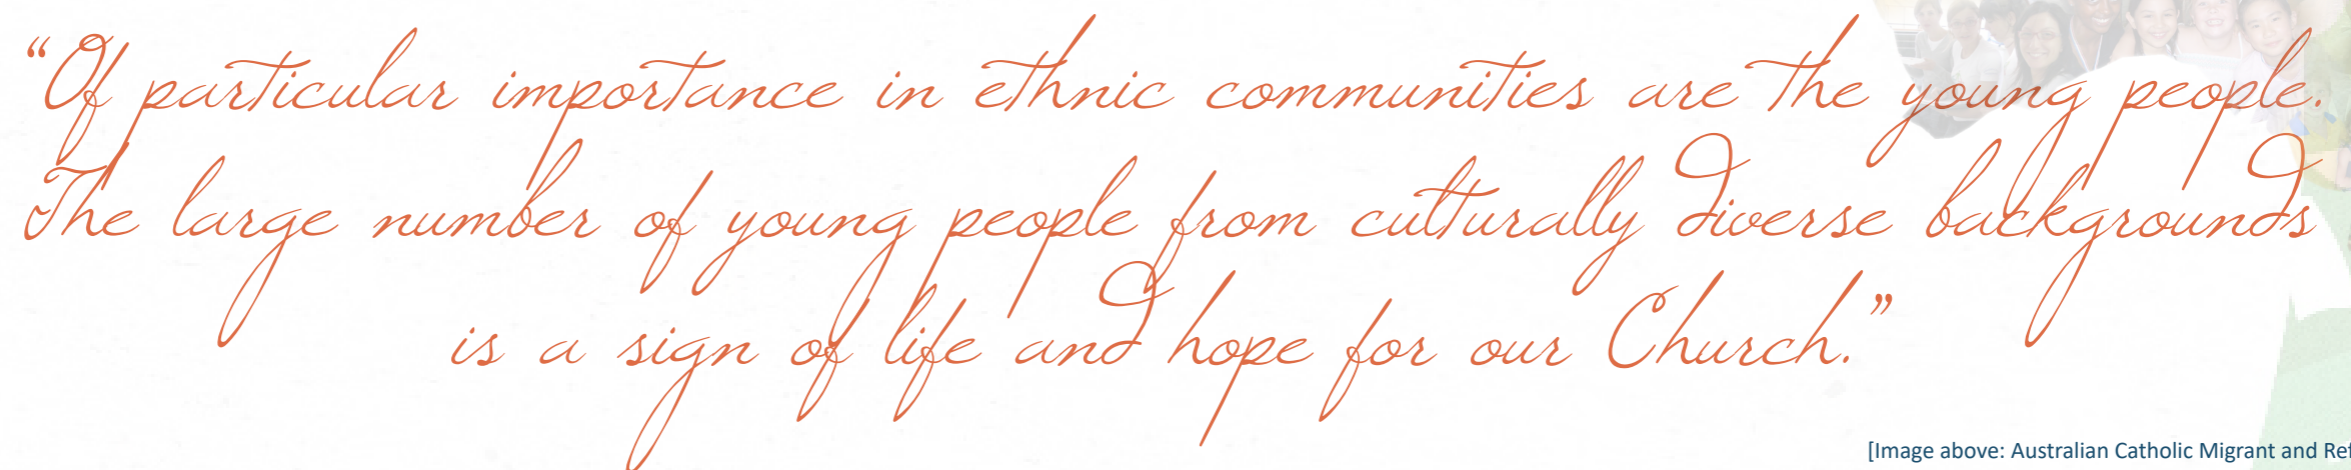 “Of particular importance in ethnic communities are the young people.
The large number of young people from culturally diverse backgrounds
is a sign of life and hope for our Church.”
[Image above: Australian Catholic Migrant and